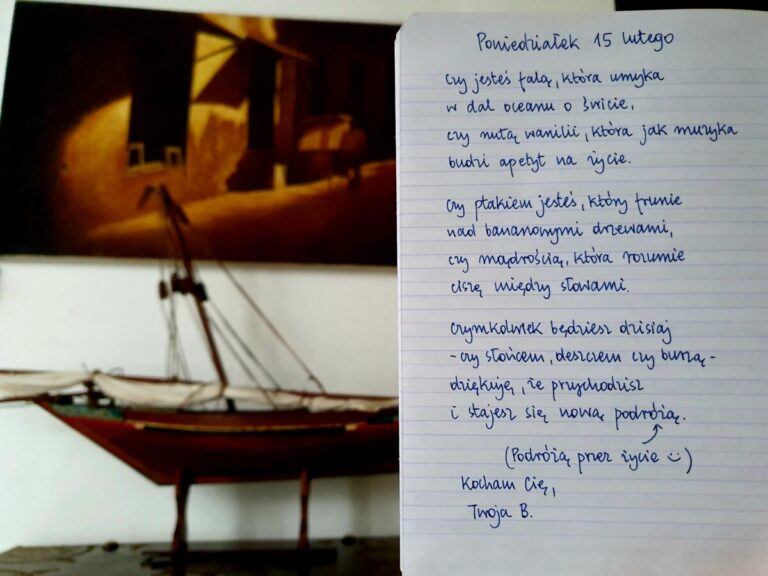 Poniedziałek 15 lutego
czy jesteś falą, która umyka
w dal oceanu o świcie,
czy nutą wanilii, która jak muzyka
budzi apetyt na życie.
czy ptakiem jesteś, który frunie
nad bananowymi drzewami,
czy mądrością, która rozumie
ciszę między słowami.
czymkolwiek będziesz dzisiaj
- czy słońcem, deszczem czy burzą -
dziękuję, że przychodzisz
i stajesz się nową podróżą.
(Podróżą przez życie ☺)
Kocham Cię,
Twoja B.